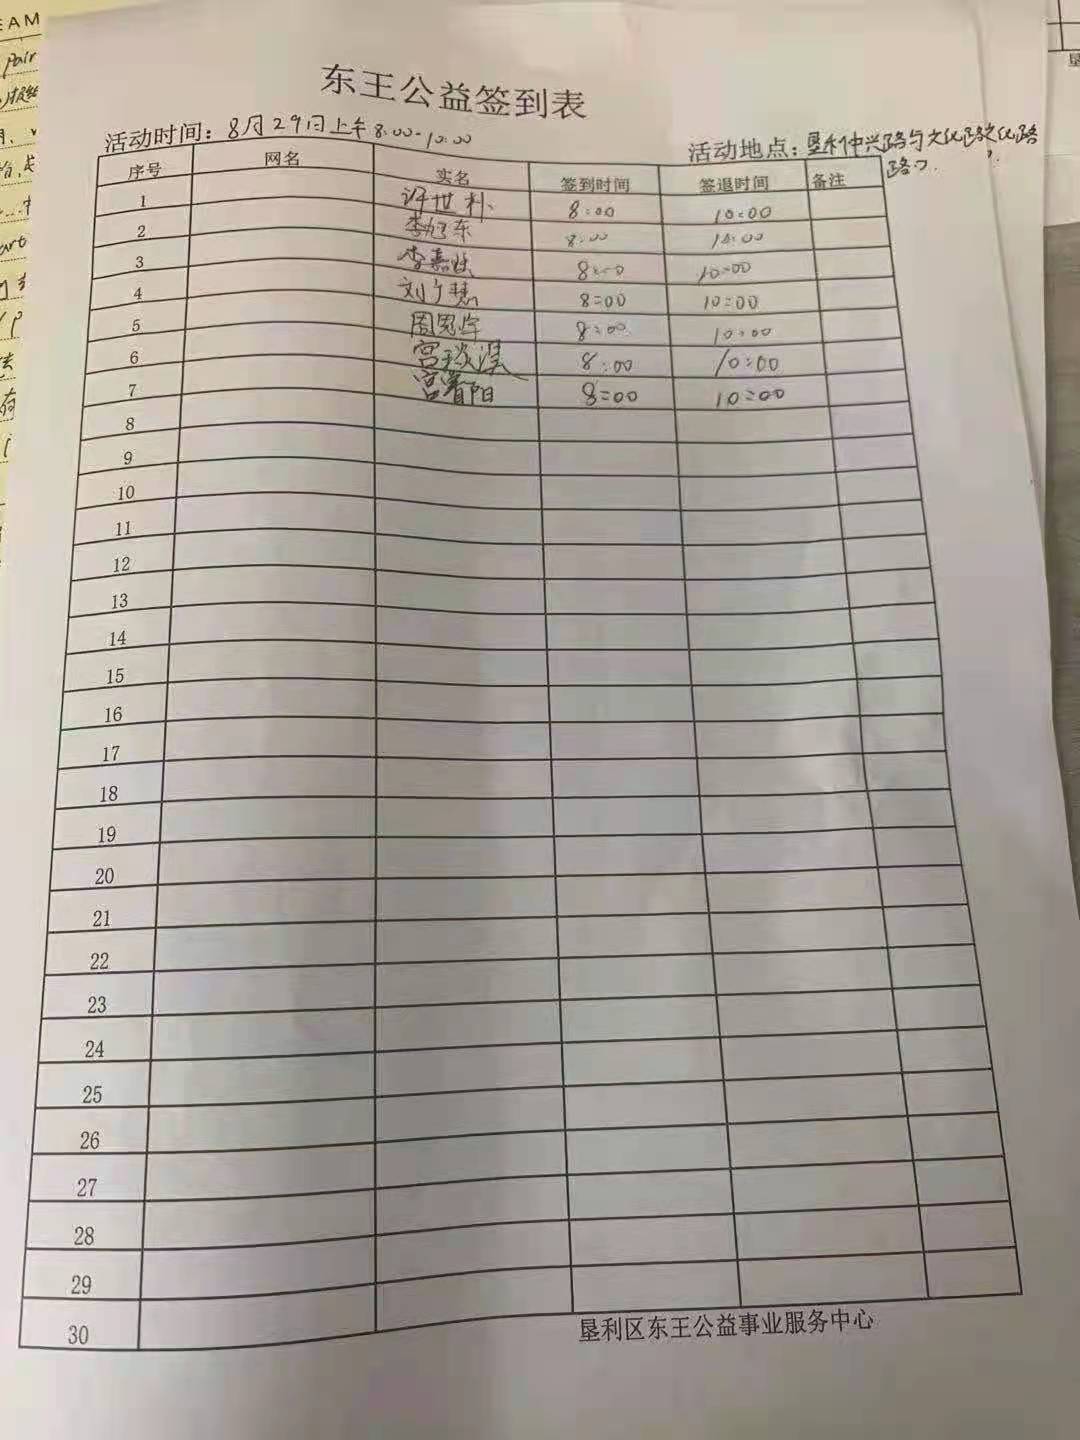 东王公益签到表
活动时间：8月29日上午8:00-10:00
活动地点：垦利中兴路与文化路文化路
路口.
序号 网名 实名 签到时间 签退时间 备注
1 许世朴 8:00 10:00
2 李旭东 8:00 10:00
3 李嘉 8:00 10:00
4 刘广慧 8:00 10:00
5 周思 8:00 10:00
6 宫琰淏 8:00 10:00
7 宫睿阳 8:00 10:00
8
9
10
11
12
13
14
15
16
17
18
19
20
21
22
23
24
25
26
27
28
29
30
垦利区东王公益事业服务中心